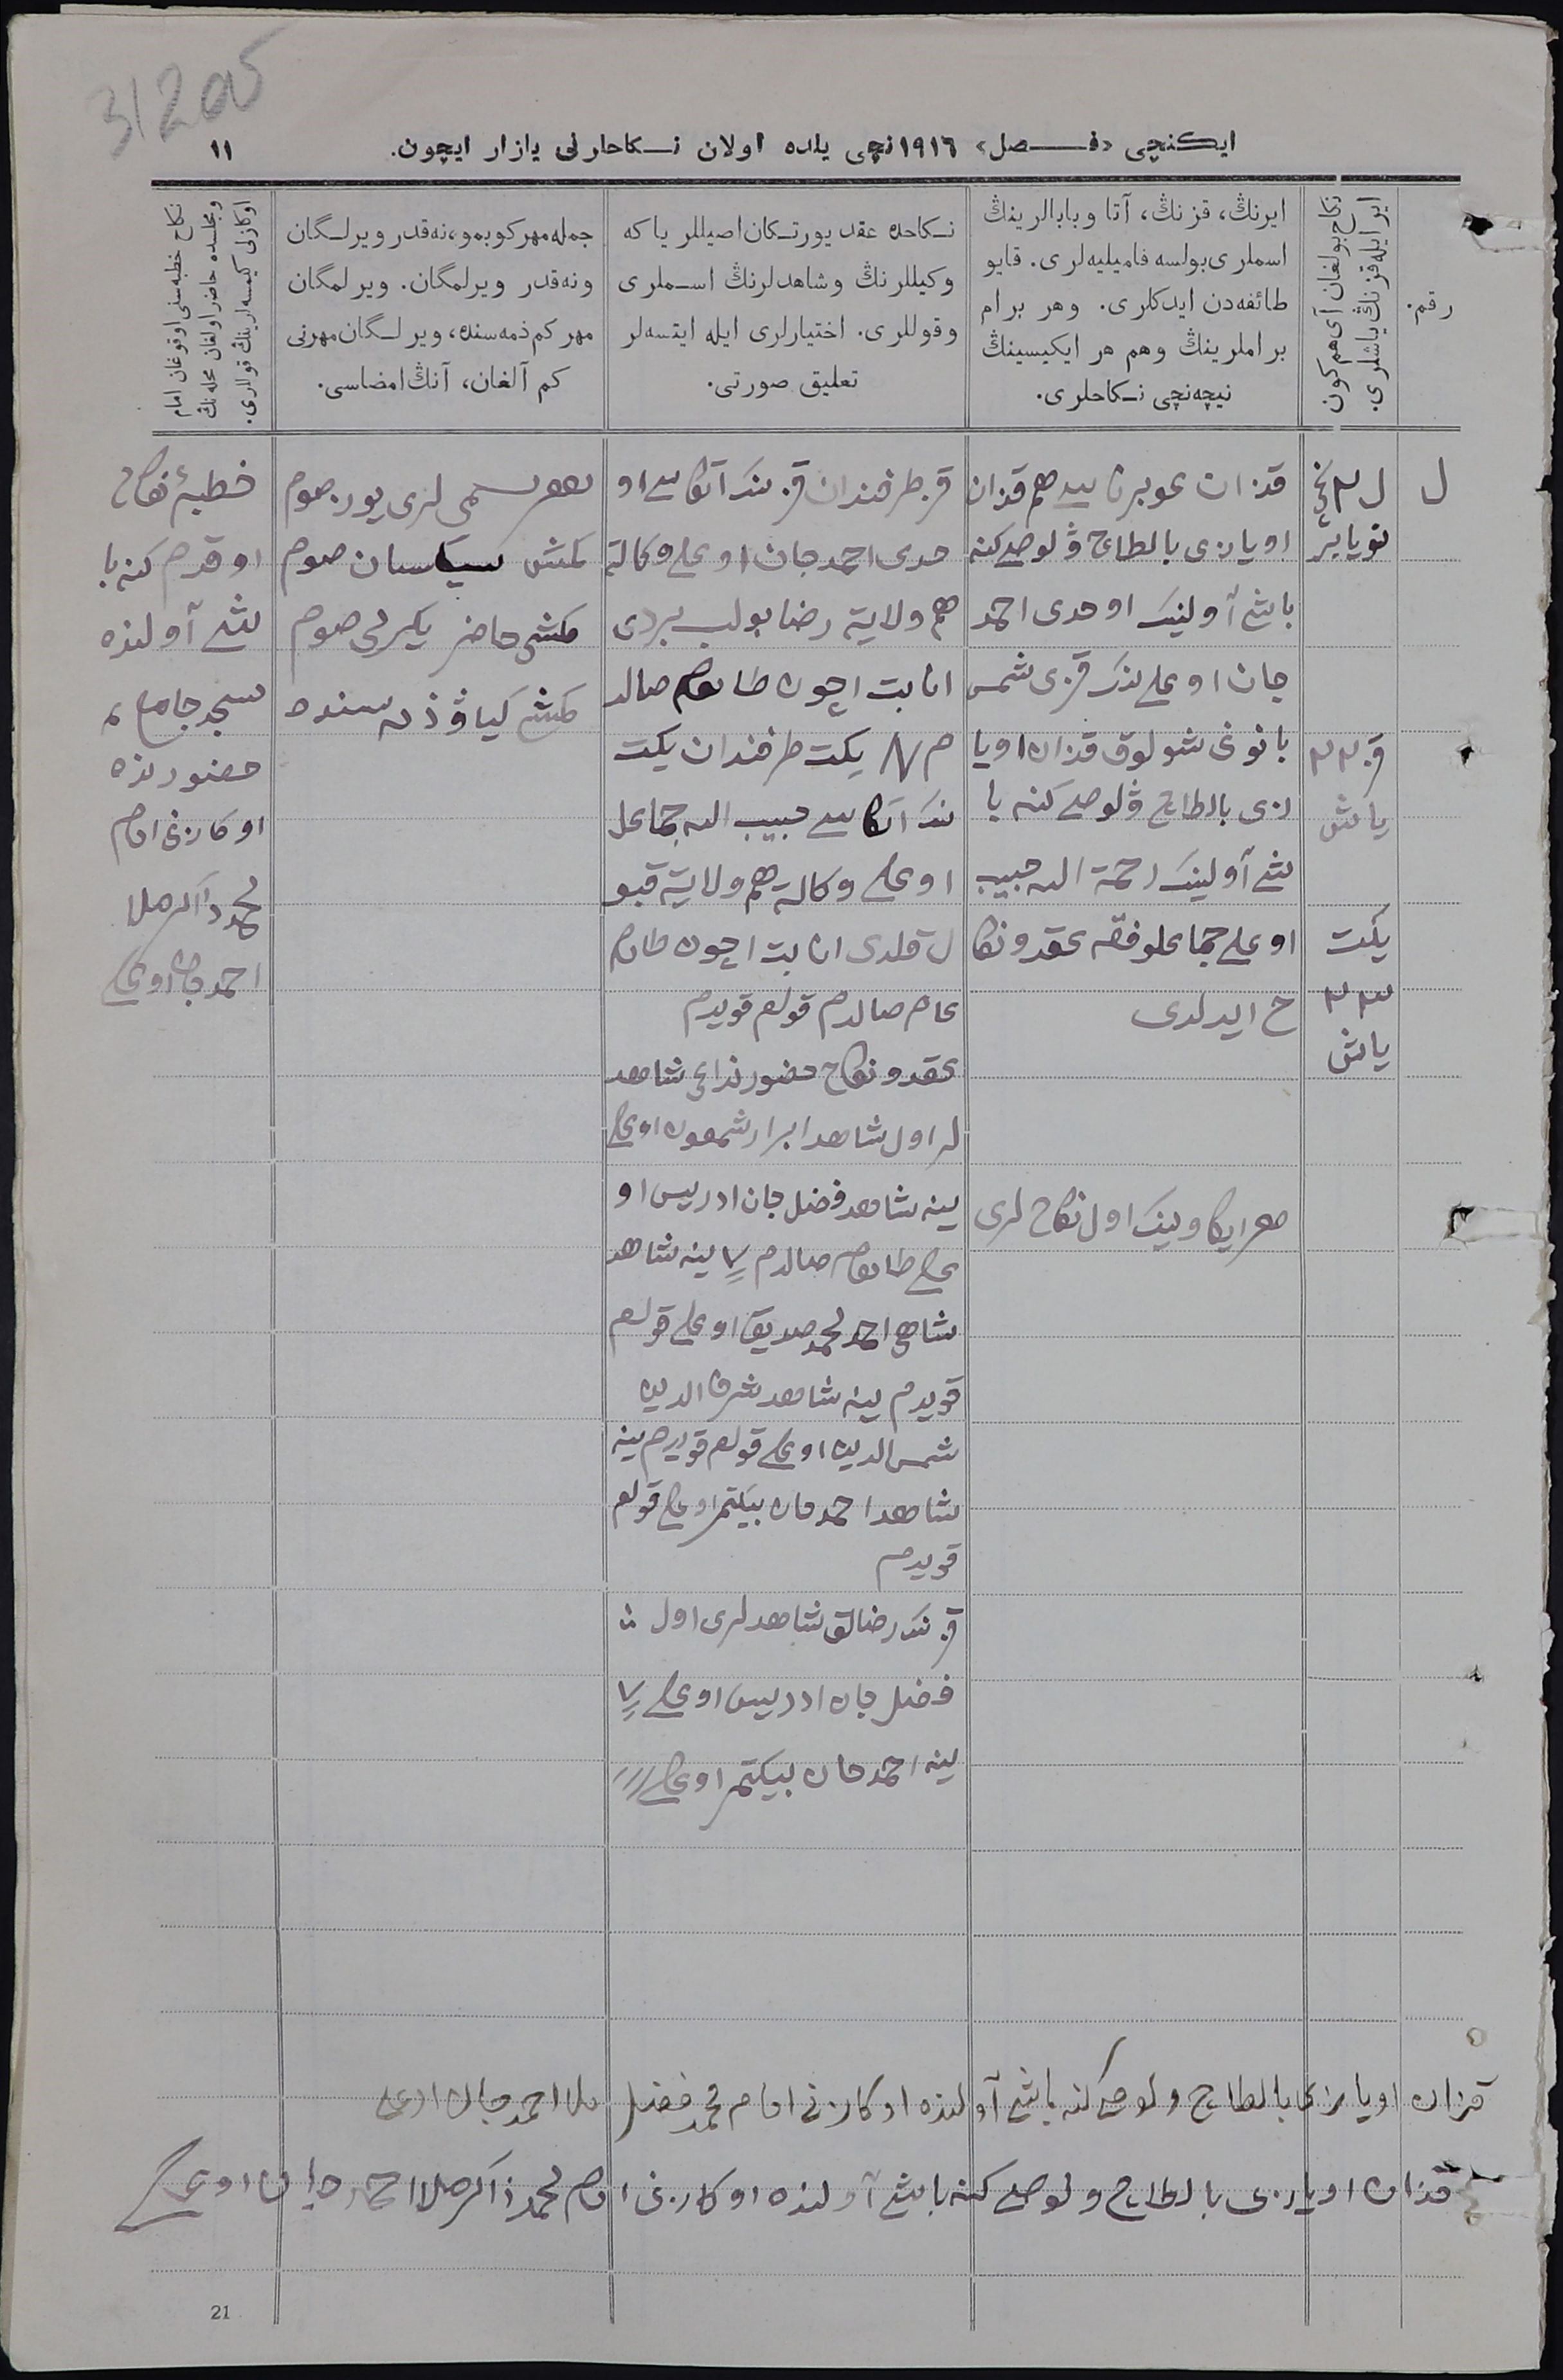 31205
ایكنچی «فـصل» ١٩١٦نچی یلده اولان نـكاحلارنی یازار ایچون.
١١
رقم.
نكاح بولغان آی هم كون
ایر ایله قزنڭ یاشلری.
ایرنڭ، قزنڭ، آتا و بابالرینڭ
اسملری بولسه فامیلیه‌لری. قایو
طائفه‌دن ایدكلری. وهر برام
براملرینڭ وهم هر ایكیسینڭ
نیچه‌نچی نـكاحلری.
نـكاحده عقد یورتـكان اصیللر یا كه
وكیللرنڭ وشاهدلرنڭ اسـملری
وقوللری. اختیارلری ایله ایتسه‌لر
تعلیق صورتی.
جمله مهر كوبمو، نه‌قدر ویرلـگان
ونه‌قدر ویرلمگان. ویرلمگان
مهر كم ذمه‌سنده، ویرلـگان مهرنی
كم آلغان، آنڭ امضاسی.
نكاح خطبه‌سنی اوقوغان امام
ومجلسده حاضر اولغان محله‌نڭ
اوكازلی كیمسه‌لرینڭ قوللاری.
نویابر
قز ٢٢
یاش
یكت
٢٣
یاش
قزان هم قزان
اویازی بالطاچ ولوصی كنه
باشی آولینك اوحدی احمد
جان اوغلی نك قزی شمس
بانو غی شولوق قزان اویا
زی بالطاچ ولوصی كنه با
شی آولینك رحمة الله حبیب
اوغلی جماعلوفقه عقد ونكا
ح ایدلدی
هر ایكاوینك اول نكاح لری
قز طرفندان قز ننك آتاسی او
حدی احمد جان اوغلی وكالة
هم ولایة رضا بولب بیردی
اثابت اچون طامغام صالد
م یكت طرفندان یكت
ننك آتاسی حبیب الله جماعل
اوغلی وكالة هم ولایة قبو
ل قلدی اثابت اچون طام
غام صالدم قولم قویدم
عقد ونكاح حضورنداغی شاهد
لر اول شاهد ابرار شمعون اوغلی
ینه شاهد فضل جان ادریس او
غلی طامغام صالدم ینه شاهد
شاهی احمد محمد صدیق اوغلی قولم
قویدم ینه شاهد شرف الدین
شمس الدین اوغلی قولم قویدم ینه
شاهد احمد جان بیكتمر اوغلی قولم
قویدم
قز ننك رضالق شاهدلری اول
فضل جان ادریس اوغلی
ینه احمد جان بیكتمر اوغلی
مهر لری یوز صوم
كمش سیكسان صوم
كمشی حاضر یكرمی صوم
كمش كیاو ذمه سنده
خطبهٔ نكاح
اوقدم كنه با
شی آولنده
مسجد جامع
حضورنده
اوكازنی امام
محمد ذاكر ملا
احمد جان اوغلی
قزان اویازی بالطاچ ولوصی كنه باشی آولنده اوكازنی امام محمد فضل ملا احمد جان اوغلی
قزان اویازی بالطاچ ولوصی كنه باشی آولنده اوكازنی امام محمد ذاكر ملا احمد جان اوغلی
21